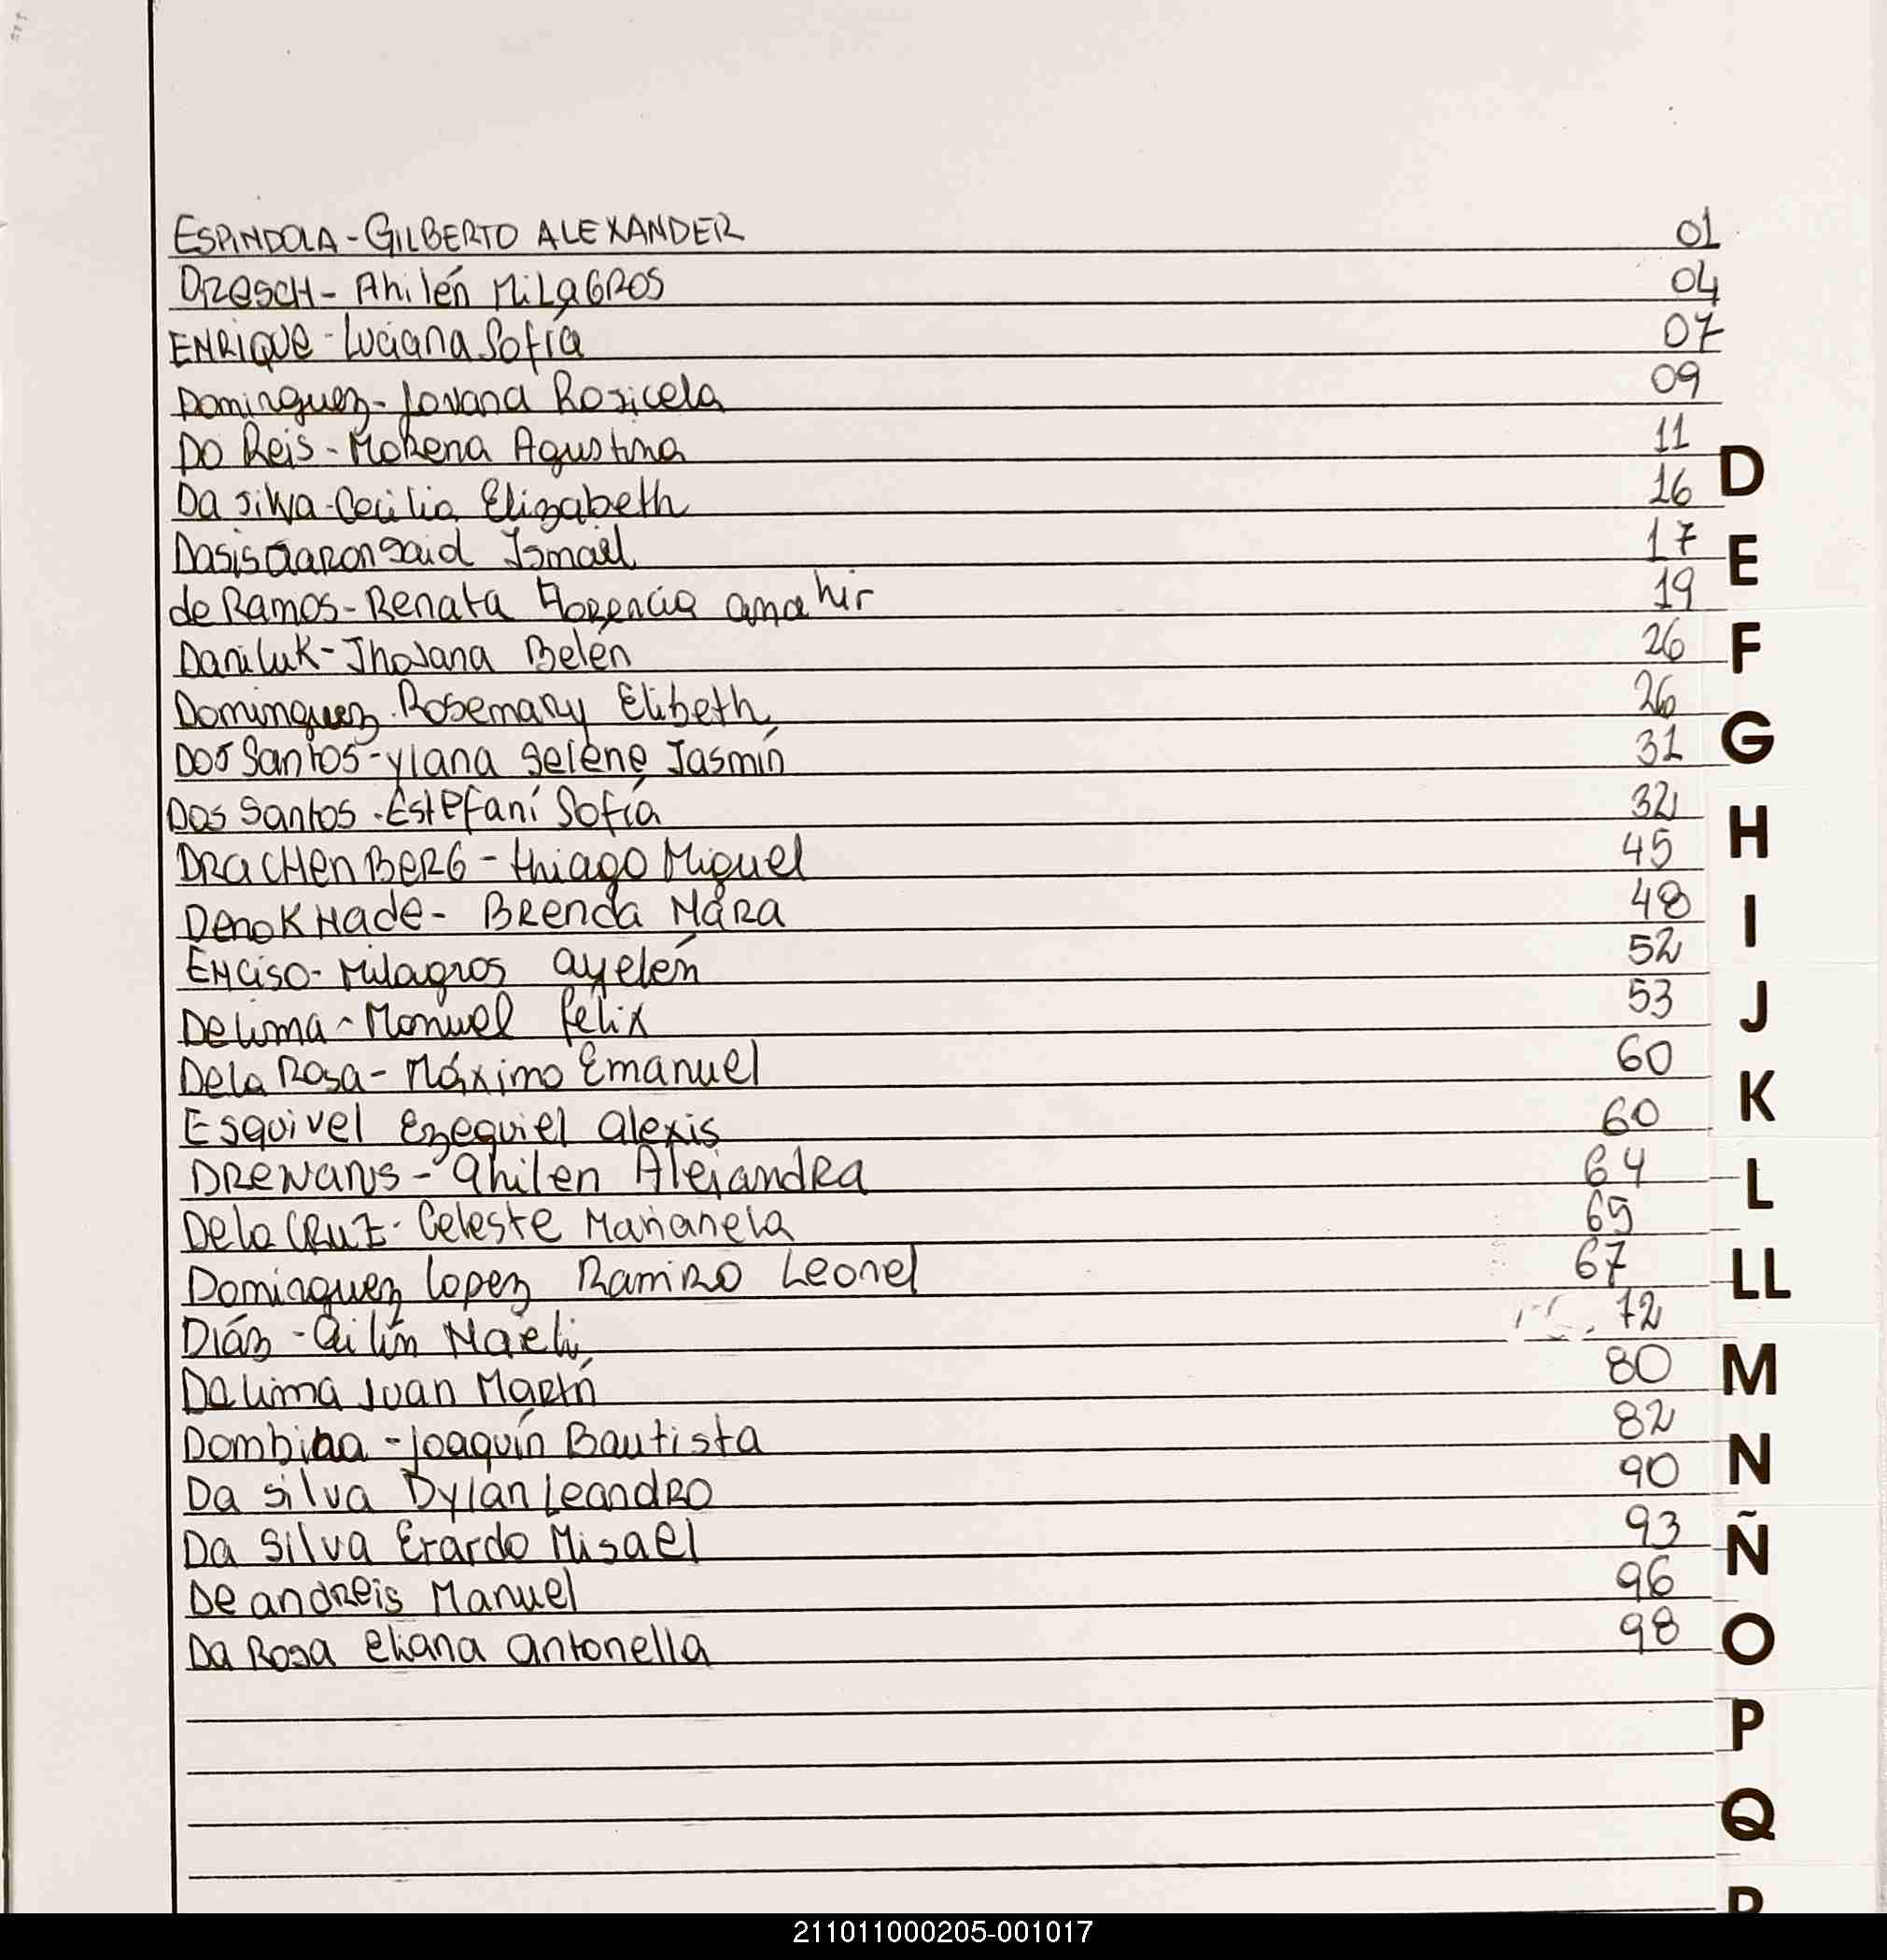 ESPINDOLA - GILBERTO ALEXANDER 01
DRESCH - Ahilén MiLaGROS 04
ENRIQUE - Luciana Sofía 07
Dominguez - Jovana Rosicela 09
Do Reis - Morena Agustina 11
Da silva - Cecilia Elizabeth 16
Dasis aaron said Ismael 17
de Ramos - Renata Florencia anahir 19
Daniluk - Jhoana Belén 26
Dominguez. Rosemary Elibeth 26
Dos Santos - ylana selene Jasmín 31
Dos Santos - Estefaní Sofía 32
DRaCHenBeRG - thiago Miguel 45
DenoKHade - BRenda MaRa 48
Enciso - Milagros ayelén 52
De lima - Manuel felix 53
De la Rosa - Máximo Emanuel 60
Esquivel Ezequiel alexis 60
DRewaNs - ahilen AlejandRa 64
De la CRUZ - Celeste Marianela 65
Dominguez lopez RamiRo Leonel 67
Diáz - Ailín Maeli 72
Da lima Juan Martín 80
Dombina - joaquín Bautista 82
Da silva Dylan leandRo 90
Da Silva Erardo Misael 93
De andReis Manuel 96
Da Rosa eliana antonella 98
D
E
F
G
H
I
J
K
L
LL
M
N
Ñ
O
P
Q
211011000205-001017